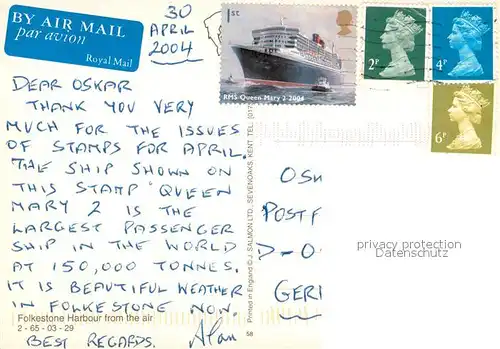 BY AIR MAIL
par avion
Royal Mail
30
APRIL
2004
1st
RMS Queen Mary 2-2004
2P
4P
6P
DEAR OSKAR
THANK YOU VERY
MUCH FOR THE ISSUES
OF STAMPS FOR APRIL.
THE SHIP SHOWN ON
THIS STAMP QUEEN
MARY 2 IS THE
LARGEST PASSENGER
SHIP IN THE WORLD
AT 150,000 TONNES.
IT IS BEAUTIFUL WEATHER
IN FOLKESTONE NOW.
Folkestone Harbour from the air
2 - 65 - 03 - 29
BEST REGARDS. Alan
58
Printed in England © J. SALMON LTD., SEVENOAKS, KENT. TEL
OS
POST F
D-O
GER
privacy protection
Datenschutz